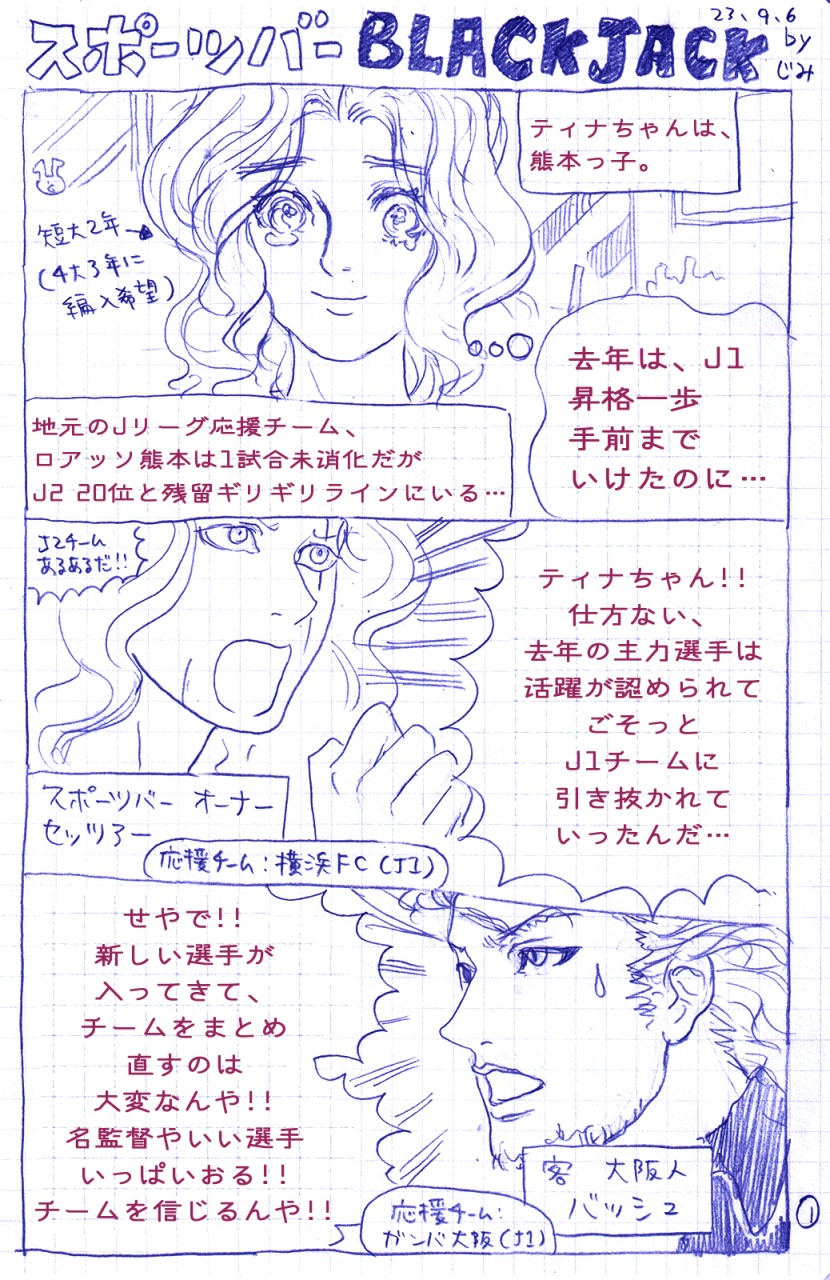 スポーツバー BLACKJACK
23、9、6
by
じみ
ティナちゃんは、
熊本っ子。
短大2年
(4大3年に
編入希望)
去年は、J1
昇格一歩
手前まで
いけたのに…
地元のJリーグ応援チーム、
ロアッソ熊本は1試合未消化だが
J2 20位と残留ギリギリラインにいる…
J2チーム
あるあるだ!!
ティナちゃん!!
仕方ない、
去年の主力選手は
活躍が認められて
ごそっと
J1チームに
引き抜かれて
いったんだ…
スポーツバー オーナー
セッツァー
応援チーム:横浜FC(J1)
せやで!!
新しい選手が
入ってきて、
チームをまとめ
直すのは
大変なんや!!
名監督やいい選手
いっぱいおる!!
チームを信じるんや!!
客 大阪人
バッシュ
応援チーム:
ガンバ大阪(J1)
1